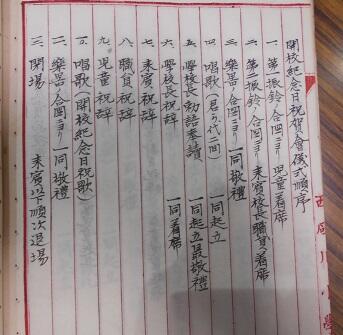 開校紀念日祝賀會儀式順序
一、第一振鈴ノ合圖ニヨリ 児童着席
二、第二振鈴ノ合圖ニヨリ 来賓校長職員着席
三、樂器ノ合圖ニヨリ 一同敬禮
四、唱歌(君が代二回) 一同起立
五、學校長勅語奉讀 一同起立最敬禮
六、學校長祝辞 一同着席
七、来賓祝辞
八、職員祝辞
九、児童祝辞
一〇、唱歌(開校紀念日祝歌)
一一、樂器ノ合圖ニヨリ 一同敬禮
一二、閉場 来賓以下順次退場
小學